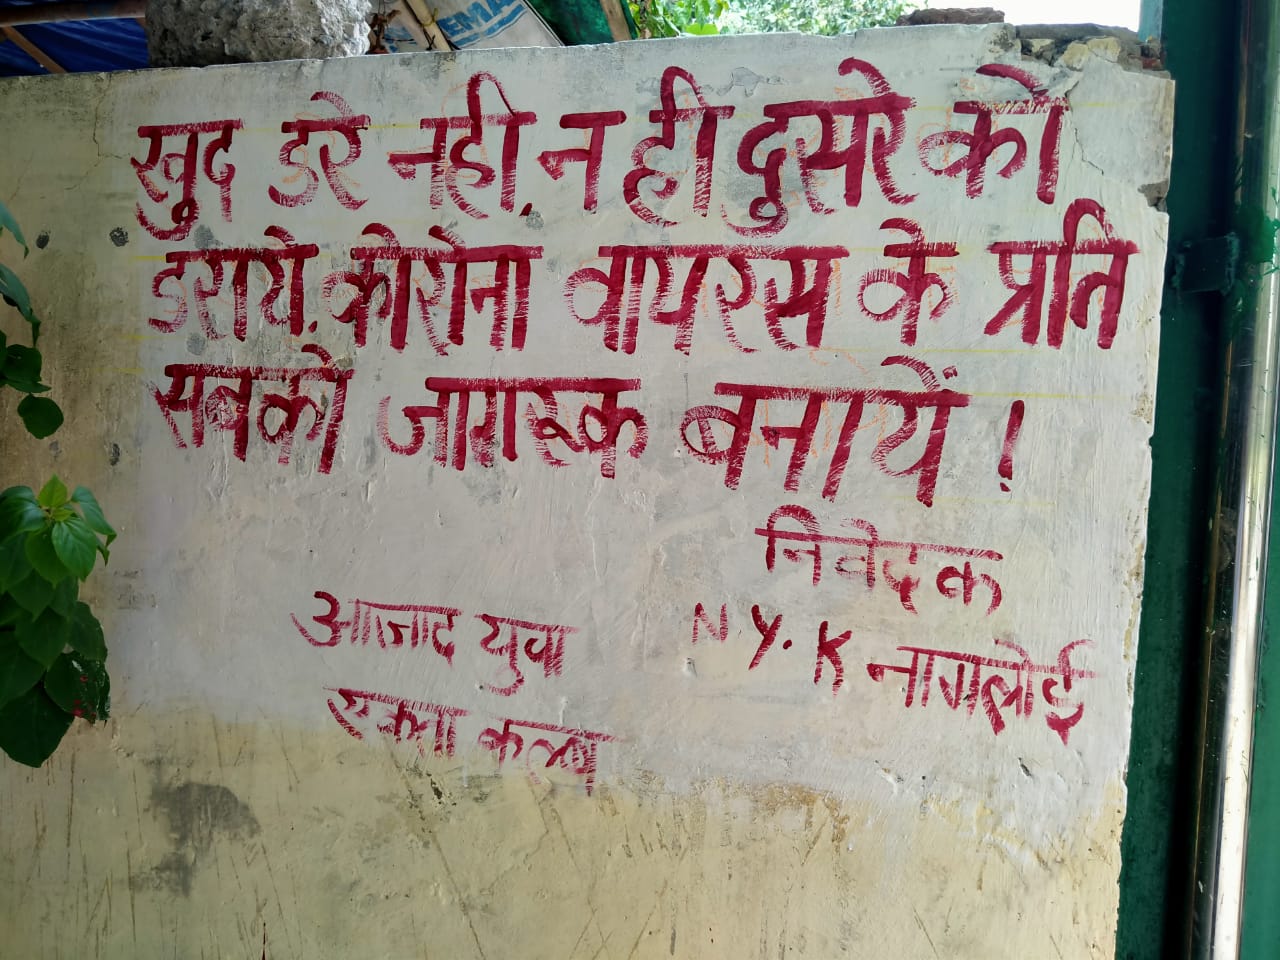 खुद डरे नही. न ही दुसरे को
डराये. कोरोना वायरस के प्रति
सबको जागरूक बनायें !
निवेदक
आजाद युवा
N Y. K नागलोई
एकता कल्ब